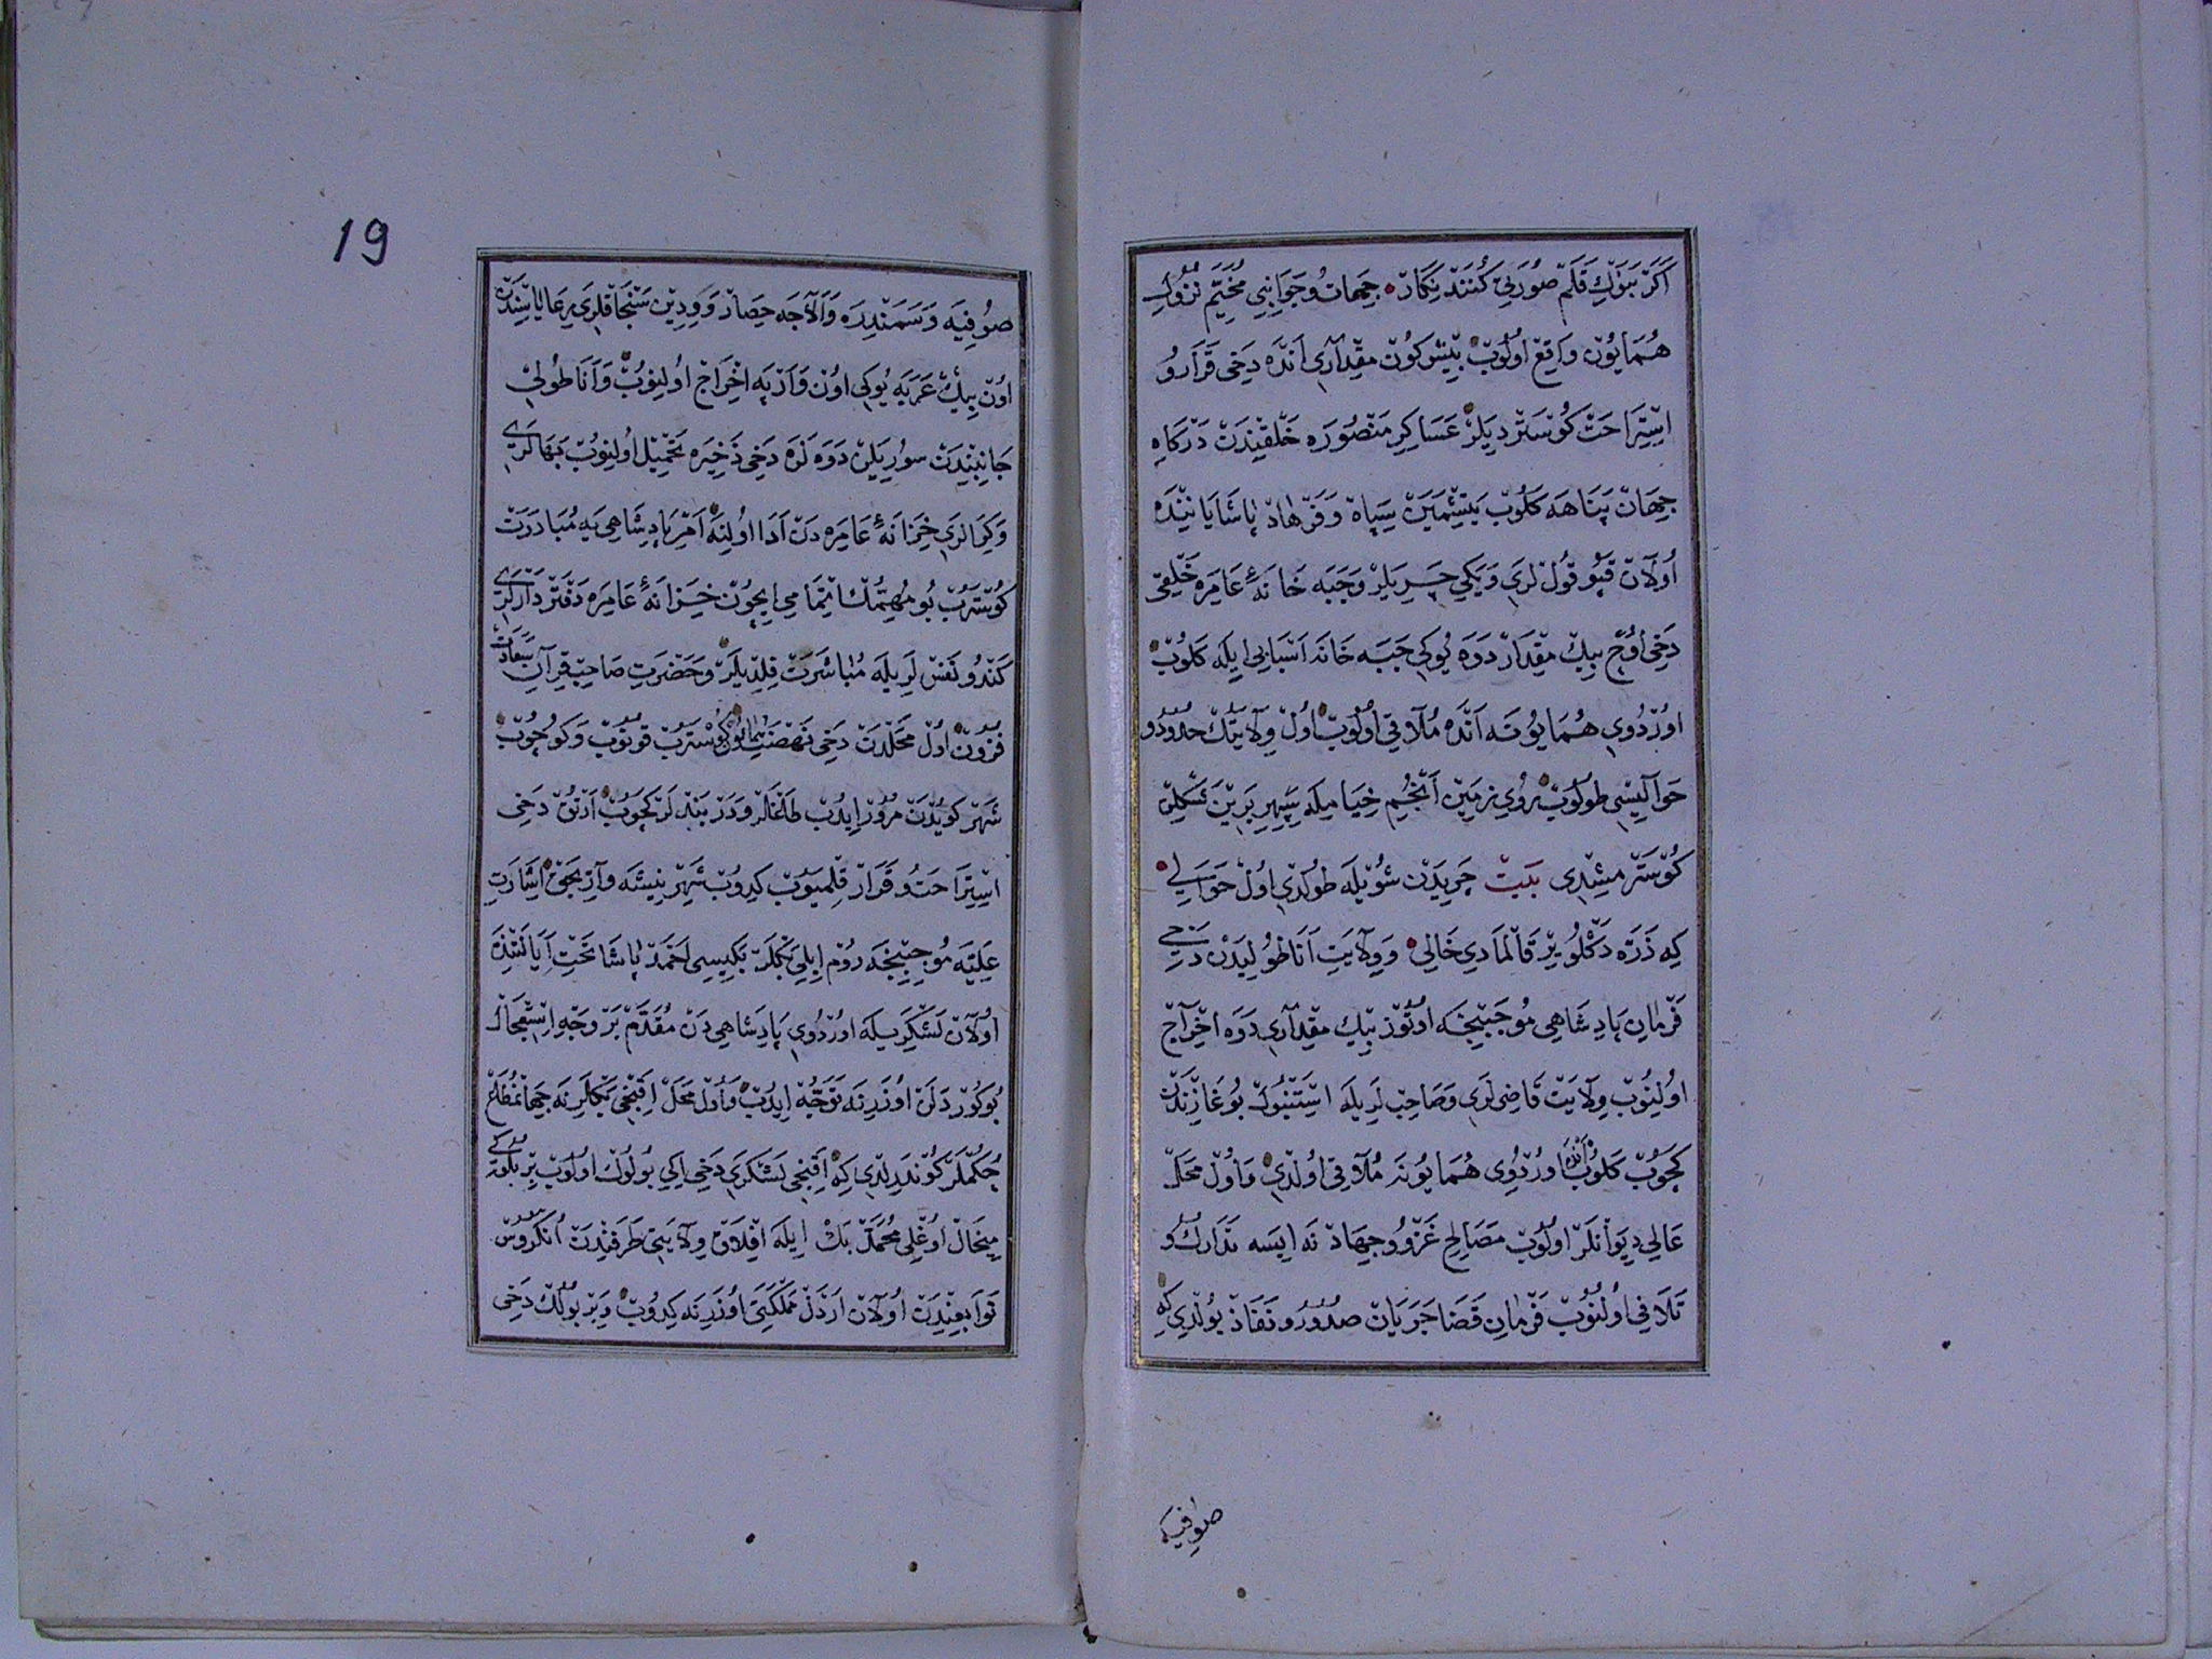 اَكَرْ بَنَوْكِ قَلَمْ صُورَتِى كُنَنْد نِكَارْ جِهَات وُ جَوَانِبِى مُخَيَّمِ نُزُولِ
هُمَايُونْ وَاقِعْ اُولُوبْ بِيشْ كُونْ مِقْدَارِى اَنْدَه دَخِى قَرَار وُ
اِسْتِرَاحَتْ كُوسْتَرْدِيلَرْ عَسَاكِرِ مَنْصُورَه خَلْقِنْدَنْ دَرْكَاهِ
جِهَانْ پَنَاهَه كَلُوبْ يَتِشْمَيَنْ سِپَاهْ وَ فَرْهَادْ پَاشَا يَانِنْدَه
اُولَانْ قَپُو قُولْلَرِى وَ يَكِى چَرِيلَرْ وَ جَبَه خَانَهٔ عَامِرَه خَلْقِى
دَخِى اُوچْ بِيكْ مِقْدَارْ دَوَه يُوكِى جَبَه خَانَه اَسْبَابِى اِيلَه كَلُوبْ
اُورْدُوىِ هُمَايُونَه اَنْدَه مُلَاقِى اُولُوبْ اُولْ وِلَايَتِكْ حُدُود وُ
حَوَالِيسِى طُولُوبْ رُوىِ زَمِينْ اَنْجُمِ خِيَامِيلَه سِپِهْرِ بَرِينْ شَكْلِنْ
كُوسْتَرْمِشْدِى بَيْت چَرِيدَنْ شُويْلَه طُولْدِى اُولْ حَوَالِى
كِه ذَرَّه دَكْلُو يِرْ قَالْمَادِى خَالِى وَ وِلَايَتِ اَنَاطُولِيدَنْ دَخِى
فَرْمَانِ پَادِشَاهِى مُوجَبِنْجَه اُوتُوزْ بِيكْ مِقْدَارِى دَوَه اِخْرَاجْ
اُولِنُوبْ وِلَايَتْ قَاضِيلَرِى وَ صَاحِبْلَرِيلَه اِسْتَنْبُولْ بُوغَازِنْدَنْ
كَچُوبْ كَلُوبْ اَنْدَه اُورْدُوىِ هُمَايُونَه مُلَاقِى اُولْدِى وَ اُولْ مَحَلْدَه
عَالِى دِيوَانْلَرْ اُولُوبْ مَصَالِحِ غَزْو وُ جِهَادْ نَه اِيسَه تَدَارُك وُ
تَلَافِى اُولُنُوبْ فَرْمَانِ قَضَا جَرَيَانْ صُدُور وُ نَفَاذْ بُولْدِى كِه
صوفیه
19
صُوفِيَه وَ سَمَنْدِرَه وَ اَلَاجَه حِصَارْ وَ وِدِينْ سَنْجَاقْلَرِى رِعَايَاسِنْدَنْ
اُونْ بِيكْ عَرَبَه يُوكِى اُونْ وَ اَرْپَه اِخْرَاجْ اُولِنُوبْ وَ اَنَاطُولِى
جَانِبِنْدَنْ سُورِيلَنْ دَوَه لَرَه دَخِى ذَخِيرَه تَحْمِيلْ اُولِنُوبْ بَهَالَرِى
وَ كِرَالَرِى خِزَانَهٔ عَامِرَه دَنْ اَدَا اُولِنَه اَمْرِ پَادِشَاهِى يَه مُبَادَرَتْ
كُوسْتَرُبْ بُو مُهِمُّكْ اِتْمَامِى اِيچُونْ خِزَانَهٔ عَامِرَه دَفْتَرْدَارْلَرِى
كَنْدُو نَفْسْلَرِيلَه مُبَاشَرَتْ قِلْدِيلَرْ وَ حَضْرَتِ صَاحِبْ قِرَانِ سَعَادَتْ
فُزُونْ اُولْ مَحَلْدَنْ دَخِى نَهْضَتِ هُمَايُونْ كُوسْتَرُبْ قُونُوبْ وَ كُوچُوبْ
شَهِرْكُويُدَنْ مُرُورْ اِيدُبْ طَاغْلَرْ وَ دَرْبَنْدْلَرْ كَچُوبْ اَرْتُقْ دَخِى
اِسْتِرَاحَت وُ قَرَارْ قِلْمَيُوبْ كِيدُوبْ شَهْرِ نِيشَه وَارِيجَقْ اِشَارَتِ
عَلِيَّه مُوجِبِنْجَه رُومْ اِيلِى بَكْلَرْبَكِيسِى اَحْمَدْ پَاشَا تَحْتِ اِيَالَتِنْدَه
اُولَانْ لَشْكَرِيلَه اُورْدُوىِ پَادِشَاهِى دَنْ مُقَدَّمْ بَرْ وَجْهِ اِسْتِعْجَالْ
بُوكُورْدَلَنْ اُوزَرِنَه تَوَجُّه اِيدُبْ وَ اُولْ مَحَلْ اَقِنْجِى بَكْلَرِنَه جِهَانْ مُطَاعْ
حُكْمْلَرْ كُونْدَرِلْدِى كِه اَقِنْجِى لَشْكَرِى دَخِى اِكِى بُولُوكْ اُولُوبْ بِرْ بُلُوكِى
مِيخَالْ اُوغْلِى مُحَمَّدْ بَكْ اِيلَه اَفْلَاقْ وِلَايَتِى طَرَفِنْدَنْ اُنْكُرُوسْ
تَوَابِعِنْدَنْ اُولَانْ اَرْدَلْ مَمْلَكَتِى اُوزَرِنَه كِيدُوبْ وَ بِرْ بُولُكْ دَخِى